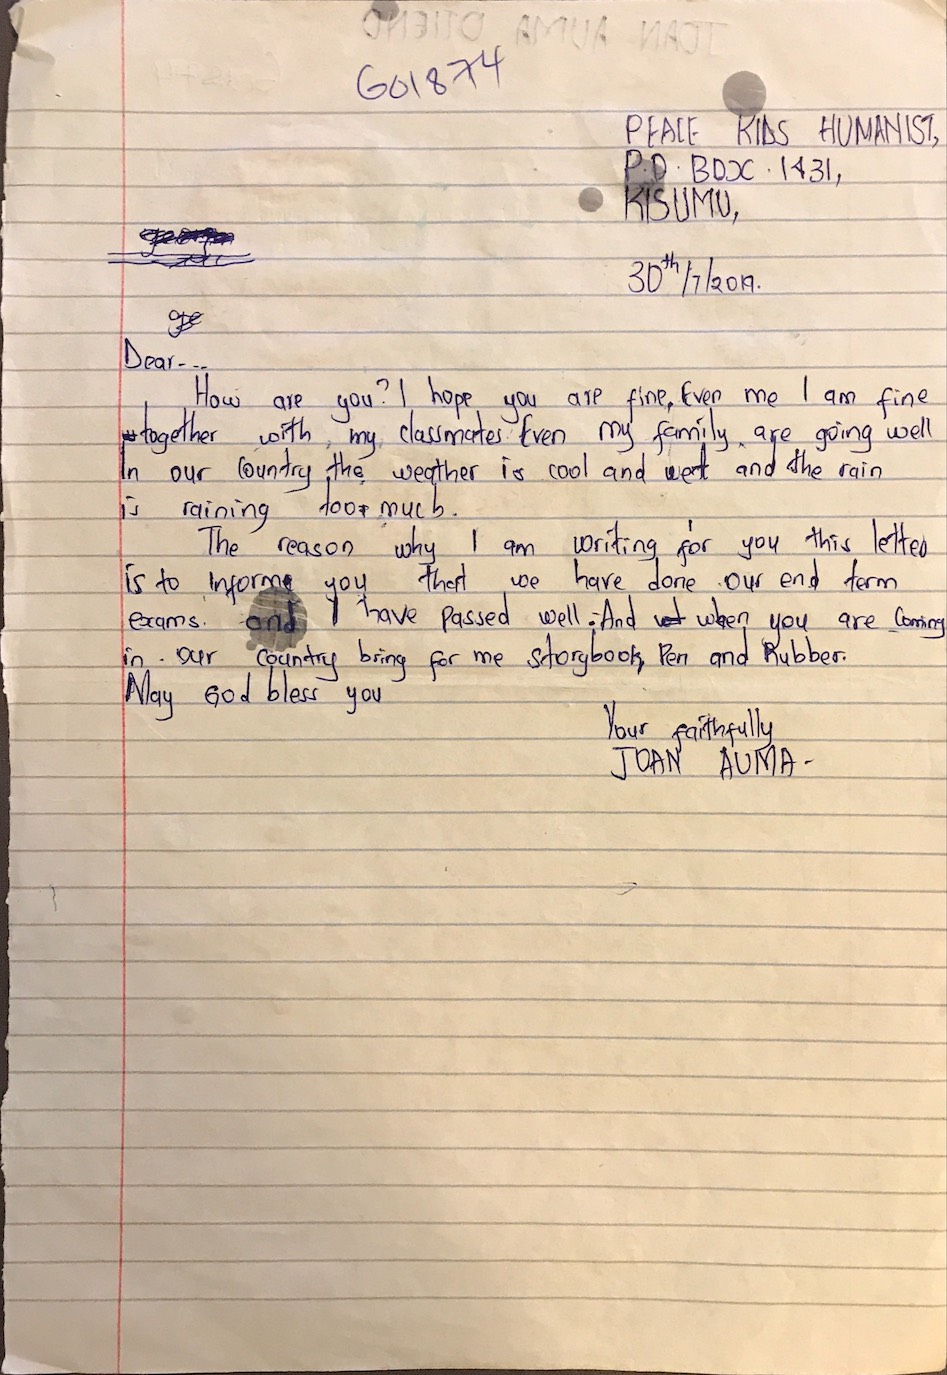 G01874
PEACE KIDS HUMANIST,
P.O. BOX. 1431,
KISUMU,
30th/7/2019.
Dear---
How are you? I hope you are fine, Even me I am fine
together with, my classmates. Even my family are going well
In our Country the weather is cool and wet and the rain
is raining too much.
The reason why I am writing for you this letter
is to informe you that we have done our end term
exams. and I have passed well. And when you are Coming
in our Country bring for me storybook, Pen and Rubber.
May God bless you
Your faithfully
JOAN AUMA-